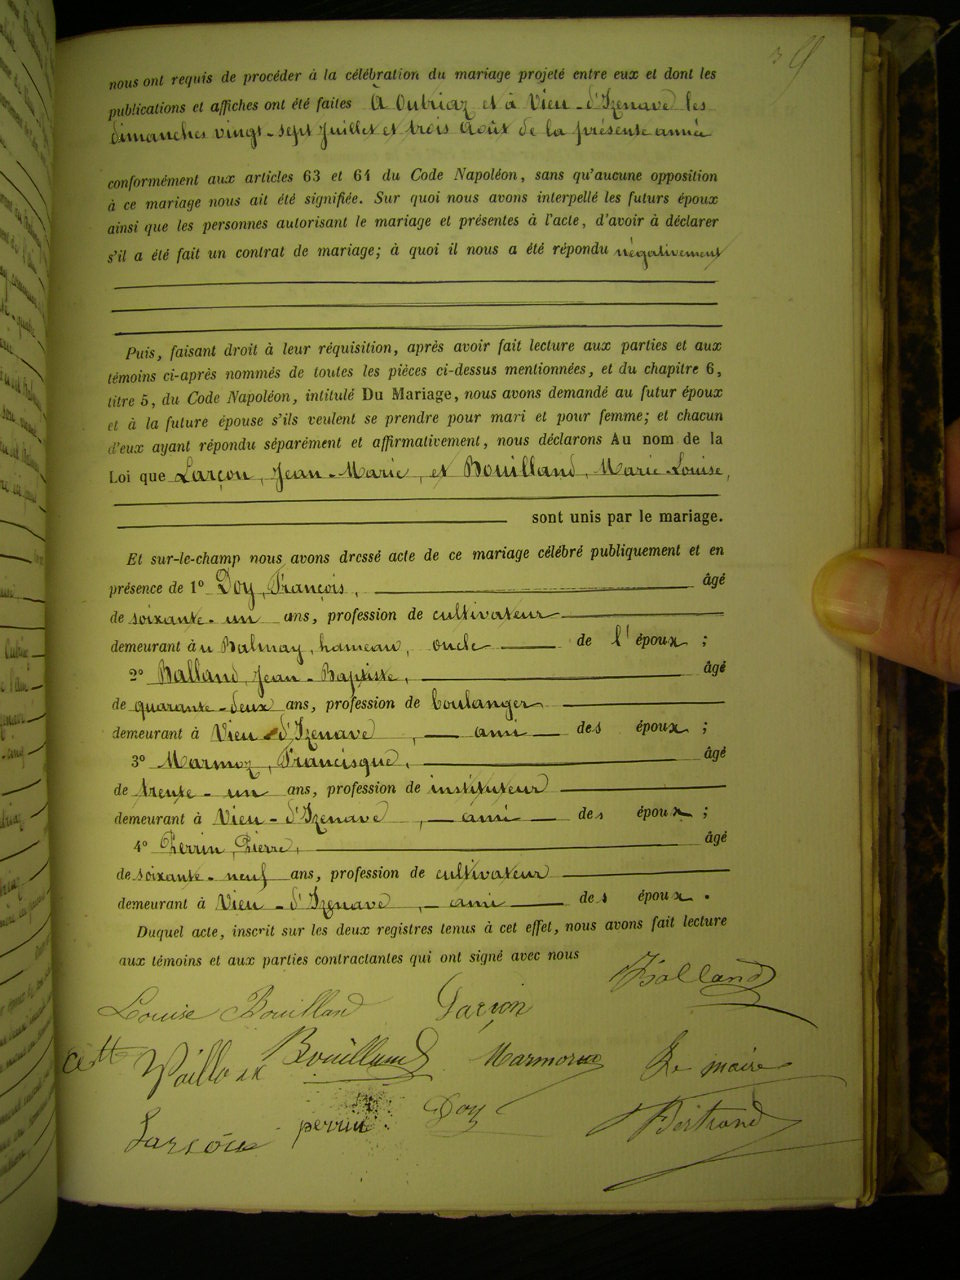 39
nous ont requis de procéder à la célébration du mariage projeté entre eux et dont les
publications et affiches ont été faites À Outriaz et à Vieu-d'Izenave les
dimanches vingt-sept Juillet et trois Août de la présente année
conformément aux articles 63 et 64 du Code Napoléon, sans qu'aucune opposition
à ce mariage nous ait été signifiée. Sur quoi nous avons interpellé les futurs époux
ainsi que les personnes autorisant le mariage et présentes à l'acte, d'avoir à déclarer
s'il a été fait un contrat de mariage; à quoi il nous a été répondu négativement
Puis, faisant droit à leur réquisition, après avoir fait lecture aux parties et aux
témoins ci-après nommés de toutes les pièces ci-dessus mentionnées, et du chapitre 6,
titre 5, du Code Napoléon, intitulé Du Mariage, nous avons demandé au futur époux
et à la future épouse s'ils veulent se prendre pour mari et pour femme; et chacun
d'eux ayant répondu séparément et affirmativement, nous déclarons Au nom de la
Loi que Larçon, Jean-Marie, et Bouilland, Marie-Louise,
sont unis par le mariage.
Et sur-le-champ nous avons dressé acte de ce mariage célébré publiquement et en
présence de 1º Doy, François, âgé
de soixante-un ans, profession de cultivateur
demeurant au Balmay, hameau, oncle de l'époux;
2º Balland, Jean-Baptiste, âgé
de quarante-deux ans, profession de boulanger
demeurant à Vieu-d'Izenave, ami des époux;
3º Marmoz, Francisque, âgé
de trente-un ans, profession de instituteur
demeurant à Vieu-d'Izenave, ami des époux;
4º Perrin, Pierre, âgé
de soixante-neuf ans, profession de cultivateur
demeurant à Vieu-d'Izenave, ami des époux.
Duquel acte, inscrit sur les deux registres tenus à cet effet, nous avons fait lecture
aux témoins et aux parties contractantes qui ont signé avec nous
Balland
Louise Bouilland Larçon
Bouilland Marmoz Le maire
Larçon perrin Doy Bertrand